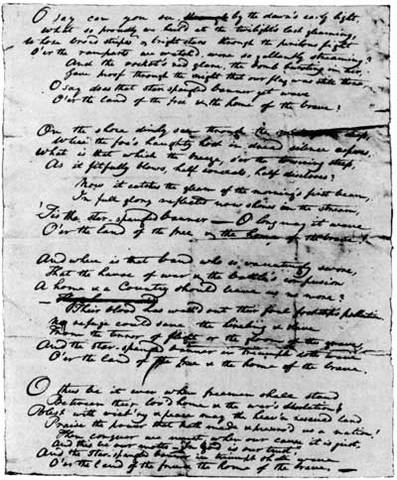 O say can you see through by the dawn's early light,
What so proudly we hail'd at the twilight's last gleaming,
Whose broad stripes & bright stars through the perilous fight
O'er the ramparts we watch'd, were so gallantly streaming?
And the rocket's red glare, the bomb bursting in air,
Gave proof through the night that our flag was still there,
O say does that star-spangled banner yet wave
O'er the land of the free & the home of the brave?
On the shore dimly seen through the deep,
Where the foe's haughty host in dread silence reposes,
What is that which the breeze, o'er the towering steep,
As it fitfully blows, half conceals, half discloses?
Now it catches the gleam of the morning's first beam,
In full glory reflected now shines in the stream,
'Tis the star-spangled banner — O long may it wave
O'er the land of the free & the home of the brave!
And where is that band who so vauntingly swore,
That the havoc of war & the battle's confusion
A home & a Country should leave us no more?
Their blood has wash'd out their foul footstep's pollution
No refuge could save the hireling & slave
From the terror of flight or the gloom of the grave,
And the star-spangled banner in triumph doth wave
O'er the land of the free & the home of the brave.
O thus be it ever when freemen shall stand
Between their lov'd home & the war's desolation!
Blest with vict'ry & peace may the heav'n rescued land
Praise the power that hath made & preserv'd us a nation!
Then conquer we must, when our cause it is just,
And this be our motto — In God is our trust,
And the star-spangled banner in triumph shall wave
O'er the land of the free & the home of the brave. —